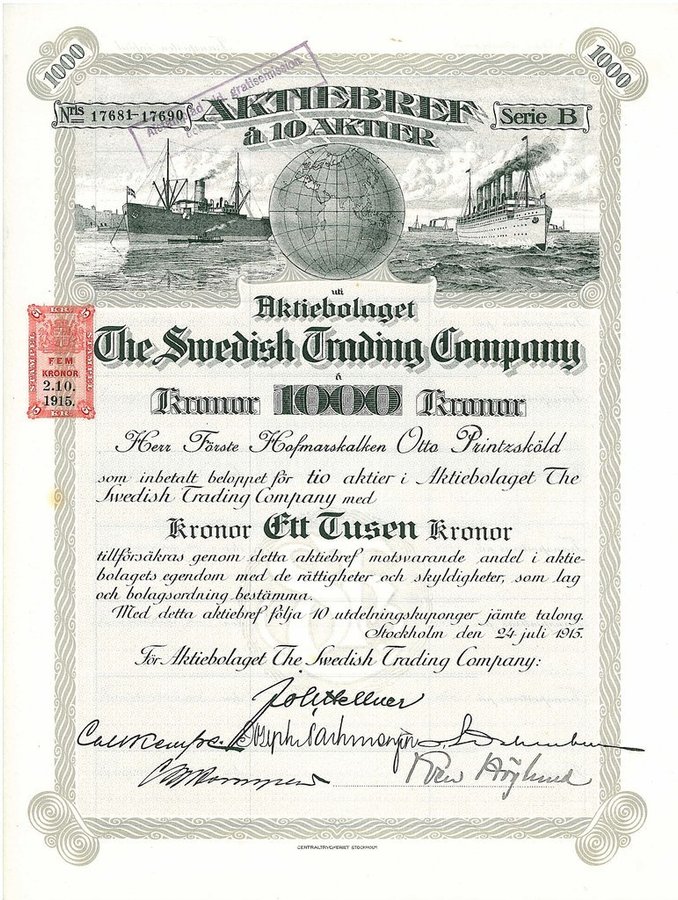 1000
1000
Nris 17681-17690
gratisemission
AKTIEBREF
à 10 AKTIER
Serie B
uti
Aktiebolaget
The Swedish Trading Company
à
Kronor 1000 Kronor
5 KR. 5
STÄMPEL
FEM
KRONOR
2.10.
1915.
5 KR. 5
Herr Förste Hofmarskalken Otto Printzsköld
som inbetalt beloppet för tio aktier i Aktiebolaget The
Swedish Trading Company med
Kronor Ett Tusen Kronor
tillförsäkras genom detta aktiebref motsvarande andel i aktie-
bolagets egendom med de rättigheter och skyldigheter, som lag
och bolagsordning bestämma.
Med detta aktiebref följa 10 utdelningskuponger jämte talong.
Stockholm den 24 juli 1915.
För Aktiebolaget The Swedish Trading Company:
Joh. Hellner
Joseph Nachmanson
Höglund
CENTRALTRYCKERIET STOCKHOLM